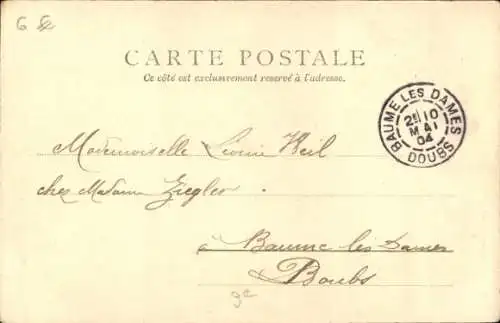 G
CARTE POSTALE
Ce côté est exclusivement reservé à l'adresse.
BAUME LES DAMES
2E 10
MAI
04
DOUBS
Mademoiselle Léonie Weil
chez Madame Ziegler
à Baume les Dames
Doubs